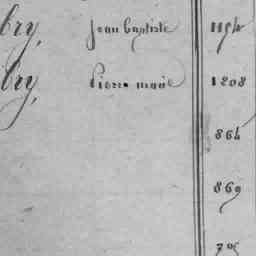 bry, Jean baptiste 1154
bry, Pierre marie 1208
864
869